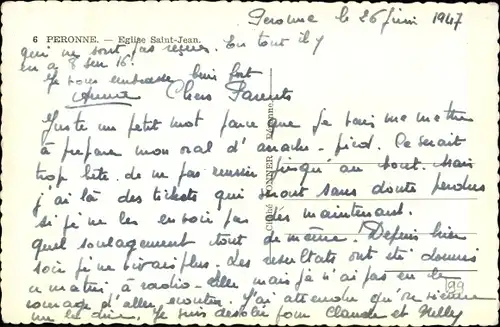 Peronne le 26 juin 1947
6 PERONNE. — Eglise Saint-Jean.
qui ne sont pas reçues. En tout il y
en a 8 sur 16.
Je vous embrasse bien fort
Chers Parents
Juste un petit mot parce que je vais me mettre
à préparer mon oral d'arrache-pied. Ce serait
trop bête de ne pas réussir jusqu'au bout. Mais
j'ai là des tickets qui seront sans doute perdus
si je ne les envoie pas dès maintenant.
quel soulagement tout de même! Depuis hier
soir je ne vivais plus. Les résultats ont été donnés
ce matin à radio- mais je n'ai pas eu le
courage d'aller écouter. J'ai attendu qu'on vienne
me le dire. Je suis désolée pour Claude et Nelly
Cliché
Péronne.
99